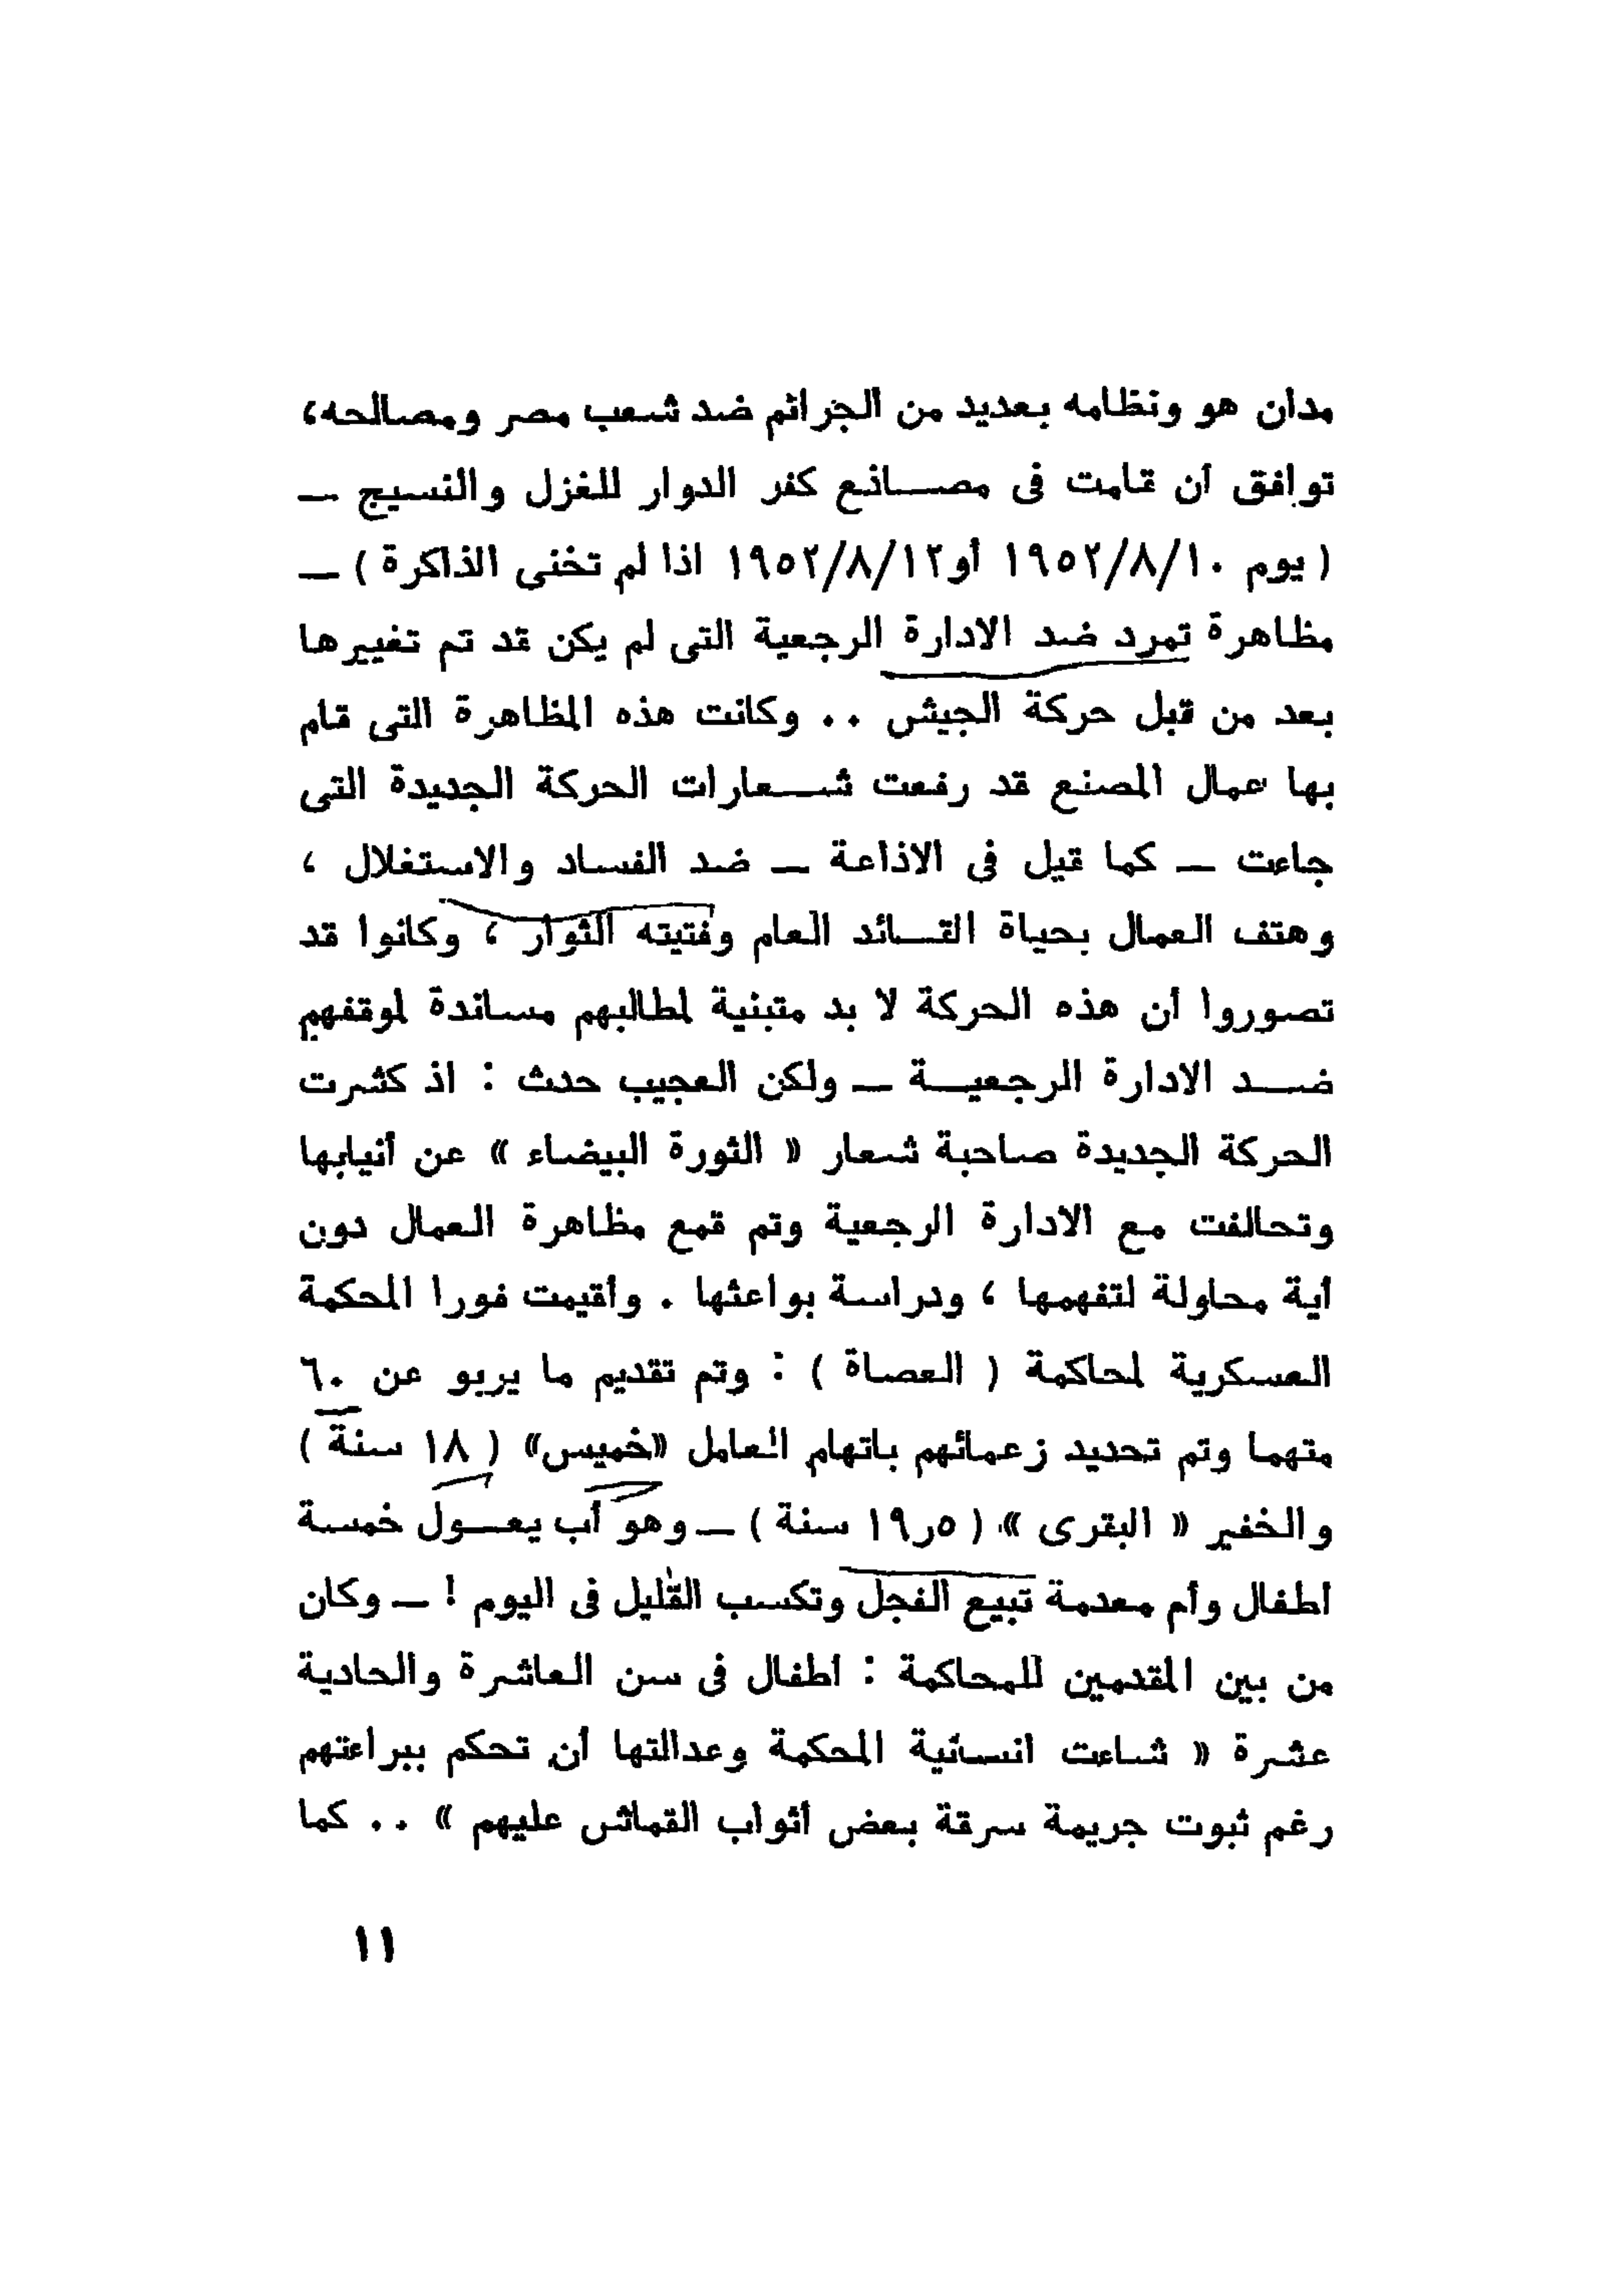 مدان هو ونظامه بعديد من الجرائم ضد شعب مصر ومصالحه،
توافق أن قامت فى مصانع كفر الدوار للغزل والنسيج —
( يوم ١٩٥٢/٨/١٠ أو١٩٥٢/٨/١٢ اذا لم تخنى الذاكرة ) —
مظاهرة تمرد ضد الادارة الرجعية التى لم يكن قد تم تغييرها
بعد من قبل حركة الجيش .. وكانت هذه المظاهرة التى قام
بها عمال المصنع قد رفعت شعارات الحركة الجديدة التى
جاءت — كما قيل فى الاذاعة — ضد الفساد والاستغلال ،
وهتف العمال بحياة القائد العام وفتيته الثوار ، وكانوا قد
تصوروا أن هذه الحركة لا بد متبنية لمطالبهم مساندة لموقفهم
ضد الادارة الرجعية — ولكن العجيب حدث : اذ كشرت
الحركة الجديدة صاحبة شعار « الثورة البيضاء » عن أنيابها
وتحالفت مع الادارة الرجعية وتم قمع مظاهرة العمال دون
أية محاولة لتفهمها ، ودراسة بواعثها . وأقيمت فورا المحكمة
العسكرية لمحاكمة ( العصاة ) : وتم تقديم ما يربو عن ٦٠
متهما وتم تحديد زعمائهم باتهام العامل «خميس» ( ١٨ سنة )
والخفير « البقرى » ( ١٩٫٥ سنة ) — وهو أب يعول خمسة
أطفال وأم معدمة تبيع الفجل وتكسب القليل فى اليوم ! — وكان
من بين المقدمين للمحاكمة : أطفال فى سن العاشرة والحادية
عشرة « شاءت انسانية المحكمة وعدالتها أن تحكم ببراءتهم
رغم ثبوت جريمة سرقة بعض أثواب القماش عليهم » .. كما
١١